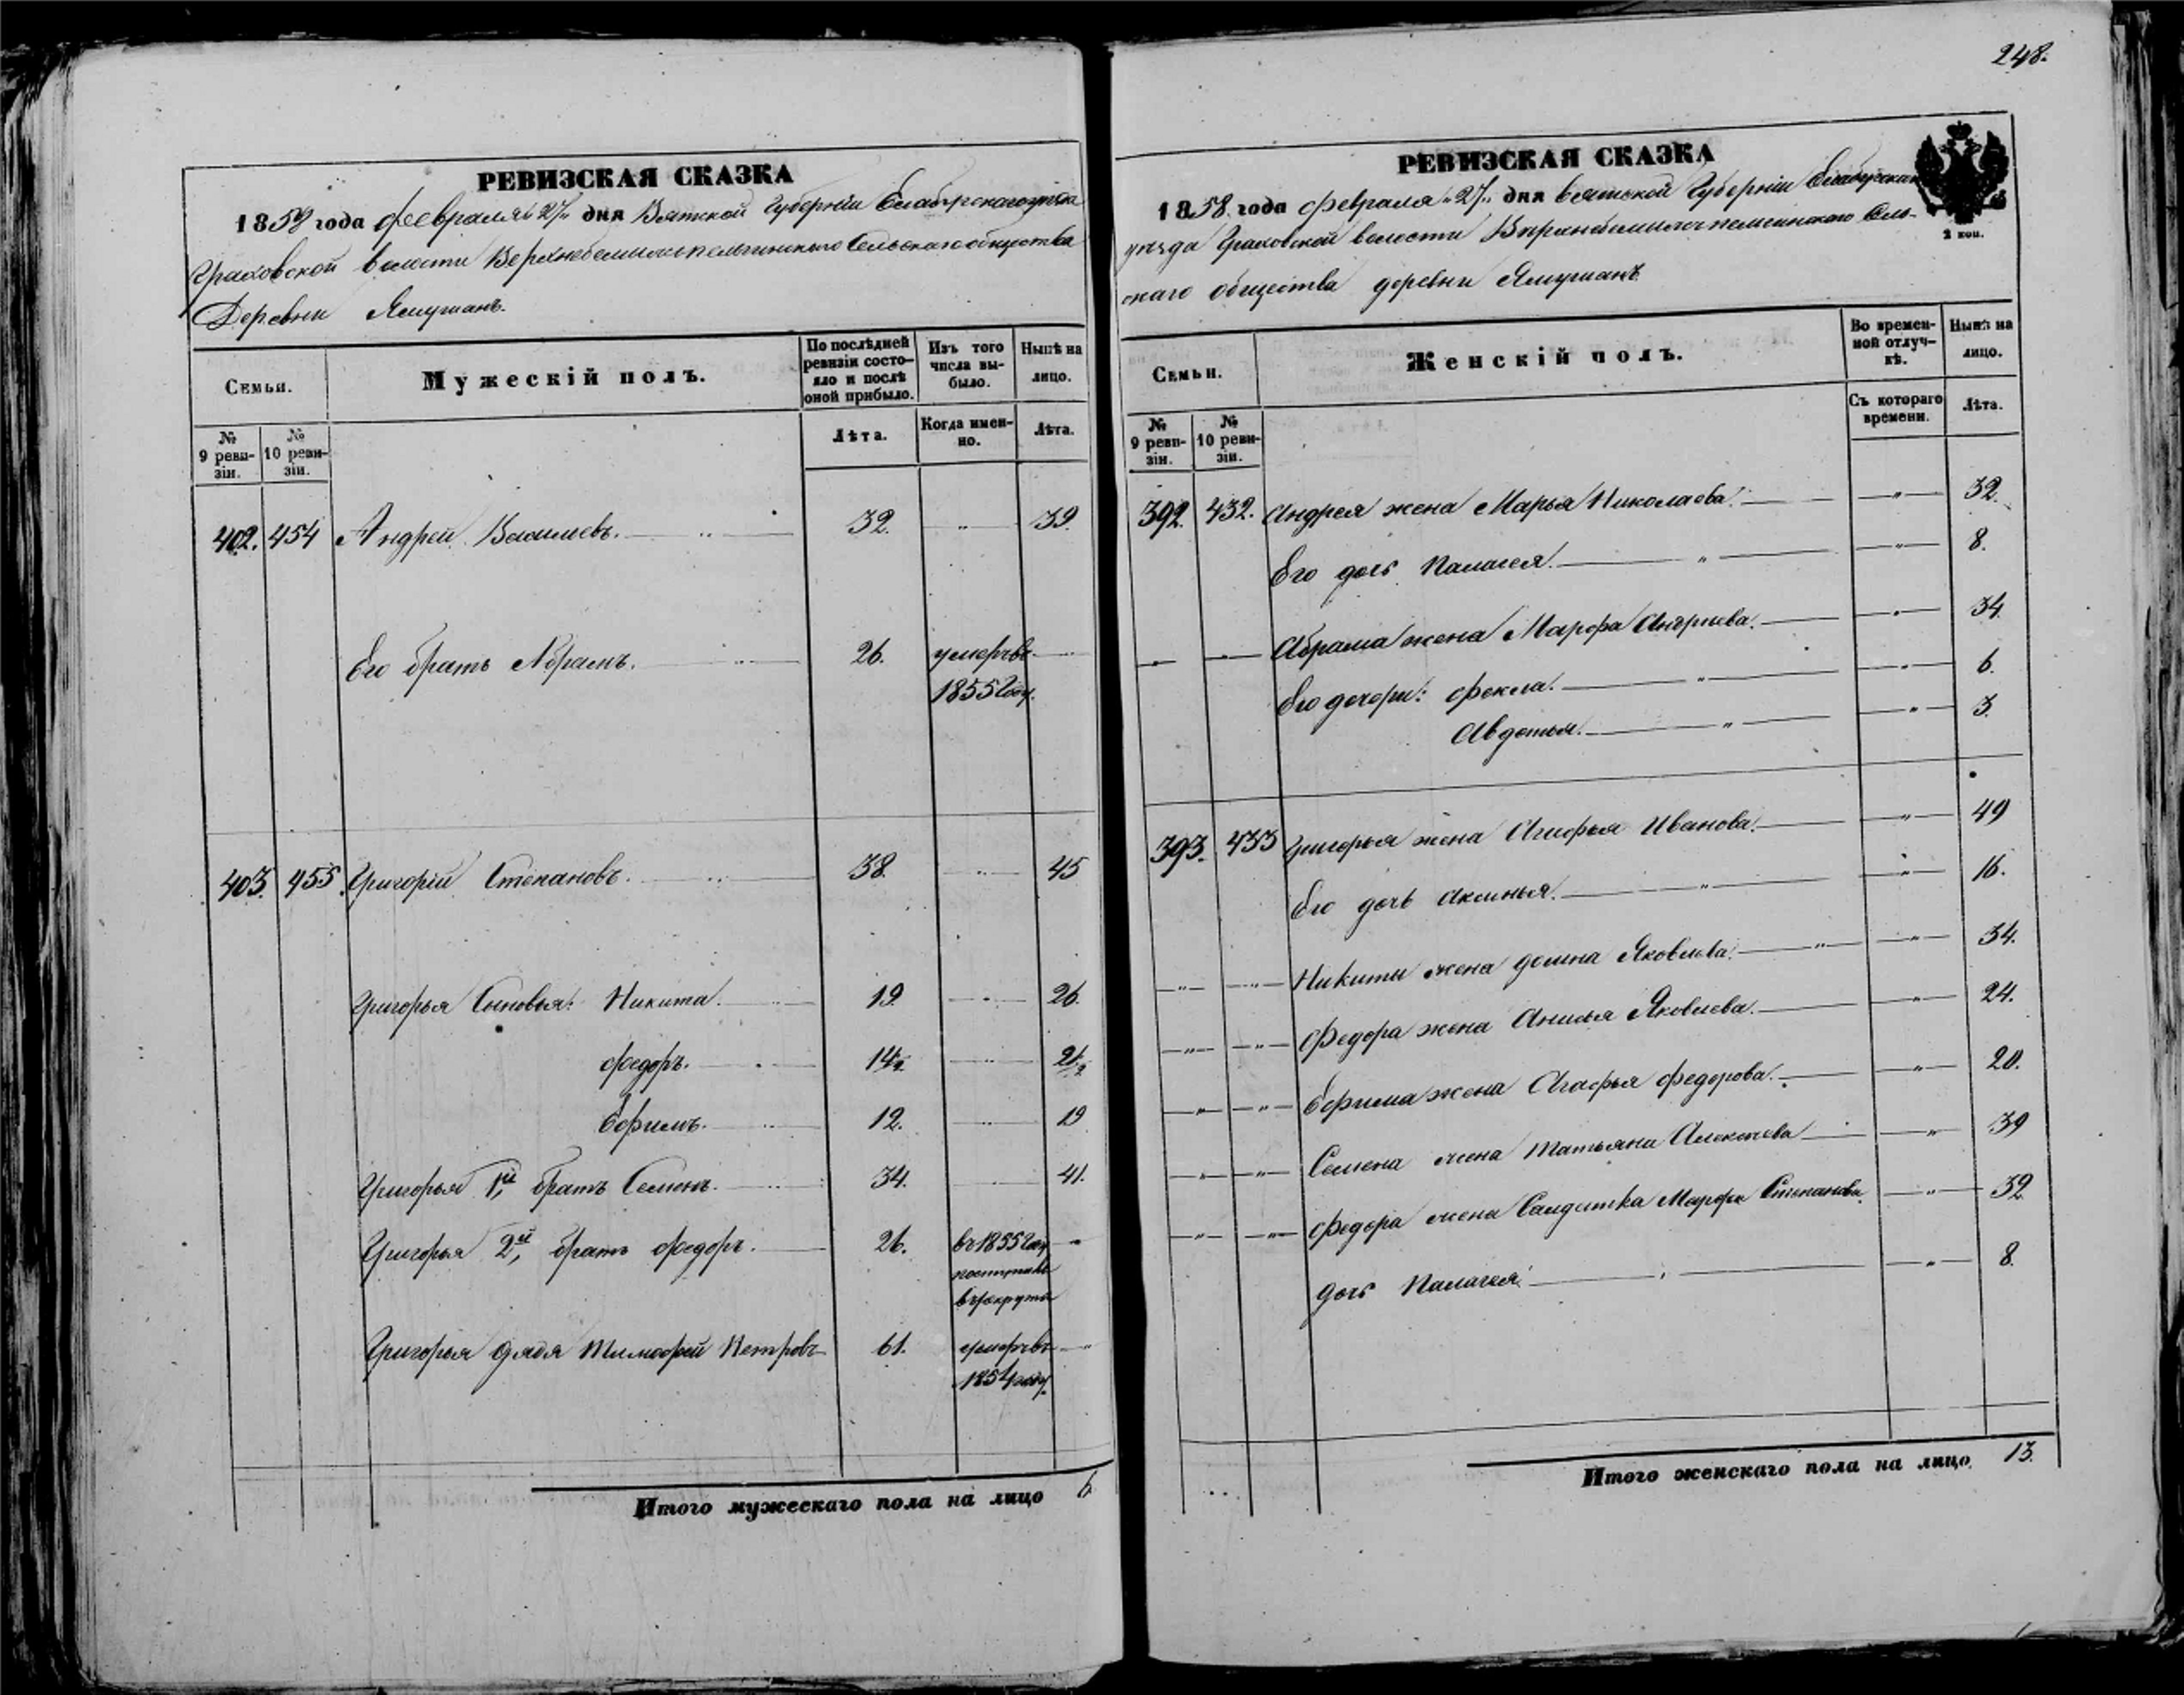 248.
РЕВИЗСКАЯ СКАЗКА
1858 года февраля "27" дня Вятской Губерніи Елабужскаго уѣзда
Граховской волости Сельскаго общества
Деревни Ямушанъ.
Семьи.
Мужескій полъ.
По послѣдней ревизіи состояло и послѣ оной прибыло.
Изъ того числа выбыло.
Нынѣ на лицо.
№ 9 ревизіи.
№ 10 ревизіи.
Лѣта.
Когда именно.
Лѣта.
402. 454 Андрей Васильевъ. 32. " 39.
Его братъ Абрамъ. 26. умеръ въ
1855 году.
403. 455. Григорій Степановъ. 38. " 45
Григорья Сыновья: Никита. 19. " 26.
Федоръ. 14½ " 21½
Ефимъ. 12. " 19
Григорья 1й братъ Семенъ. 34. 41.
Григорья 2й братъ Федоръ. 26. въ 1855 году
поступилъ
въ рекруты
Григорья дядя Тимофей Петровъ 61. умеръ въ "
1854 году.
Итого мужескаго пола на лицо 6.
РЕВИЗСКАЯ СКАЗКА
2 коп.
1858 года февраля "27" дня Вятской Губерніи Елабужскаго
уѣзда Граховской волости Сель-
скаго общества деревни Ямушанъ
Семьи.
Женскій полъ.
Во временной отлучкѣ.
Нынѣ на лицо.
№ 9 ревизіи.
№ 10 ревизіи.
Съ котораго времени.
Лѣта.
392. 432. Андрея жена Марья Николаева. " 32.
Его дочь Палагея. " " 8.
Абрама жена Марфа Андриева. " 34.
Его дочери: Фекла. " " 6.
Авдотья. " " 3.
393. 433 Григорья жена Агафья Иванова. " 49
Его дочь Аксинья. " " 16.
" " Никиты жена Домна Яковлева. " " 34.
" " Федора жена Анисья Яковлева. " 24.
" " Ефима жена Агафья Федорова. " 20.
" " Семена жена Татьяна Алексеева " 39
" " Федора жена Салдатка Марфа Степанова. " 32
дочь Палагея. " 8.
Итого женскаго пола на лицо 13.